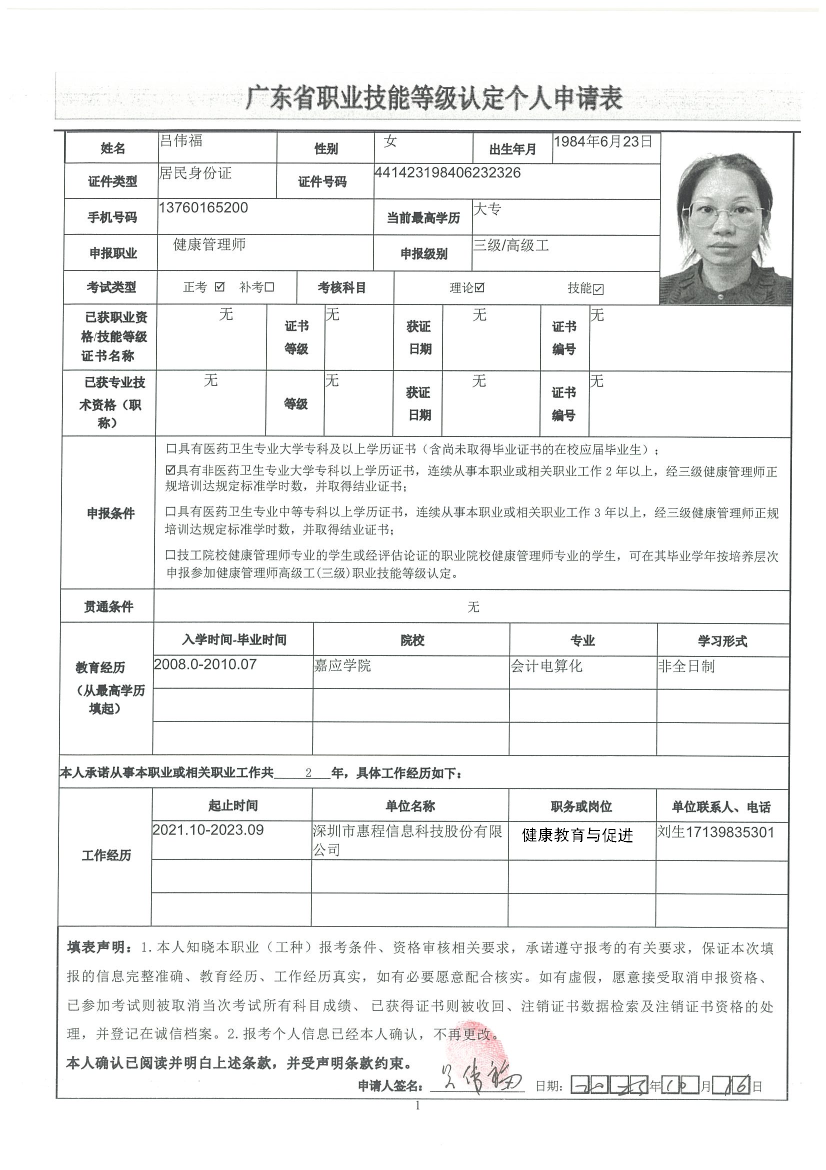 广东省职业技能等级认定个人申请表
姓名 吕伟福 性别 女 出生年月 1984年6月23日
证件类型 居民身份证 证件号码 441423198406232326
手机号码 13760165200 当前最高学历 大专
申报职业 健康管理师 申报级别 三级/高级工
考试类型 正考 ☑ 补考☐ 考核科目 理论☑ 技能☑
已获职业资格/技能等级证书名称 无 证书等级 无 获证日期 无 证书编号 无
已获专业技术资格（职称） 无 等级 无 获证日期 无 证书编号 无
申报条件
☐具有医药卫生专业大学专科及以上学历证书（含尚未取得毕业证书的在校应届毕业生）；
☑具有非医药卫生专业大学专科以上学历证书，连续从事本职业或相关职业工作 2 年以上，经三级健康管理师正
规培训达规定标准学时数，并取得结业证书；
☐具有医药卫生专业中等专科以上学历证书，连续从事本职业或相关职业工作 3 年以上，经三级健康管理师正规
培训达规定标准学时数，并取得结业证书；
☐技工院校健康管理师专业的学生或经评估论证的职业院校健康管理师专业的学生，可在其毕业学年按培养层次
申报参加健康管理师高级工(三级)职业技能等级认定。
贯通条件 无
教育经历（从最高学历填起）
入学时间-毕业时间 院校 专业 学习形式
2008.0-2010.07 嘉应学院 会计电算化 非全日制
本人承诺从事本职业或相关职业工作共 2 年，具体工作经历如下：
工作经历
起止时间 单位名称 职务或岗位 单位联系人、电话
2021.10-2023.09 深圳市惠程信息科技股份有限公司 健康教育与促进 刘生17139835301
填表声明：1.本人知晓本职业（工种）报考条件、资格审核相关要求，承诺遵守报考的有关要求，保证本次填
报的信息完整准确、教育经历、工作经历真实，如有必要愿意配合核实。如有虚假，愿意接受取消申报资格、
已参加考试则被取消当次考试所有科目成绩、 已获得证书则被收回、注销证书数据检索及注销证书资格的处
理，并登记在诚信档案。2.报考个人信息已经本人确认，不再更改。
本人确认已阅读并明白上述条款，并受声明条款约束。
申请人签名： 吕伟福 日期：2023年10月16日
1